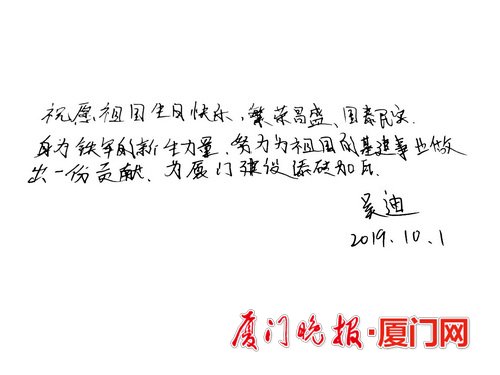 祝愿祖国生日快乐,繁荣昌盛、国泰民安.
身为铁军的新生力量,努力为祖国的基建事业做
出一份贡献、为厦门建设添砖加瓦.
吴迪
2019.10.1
厦门晚报·厦门网